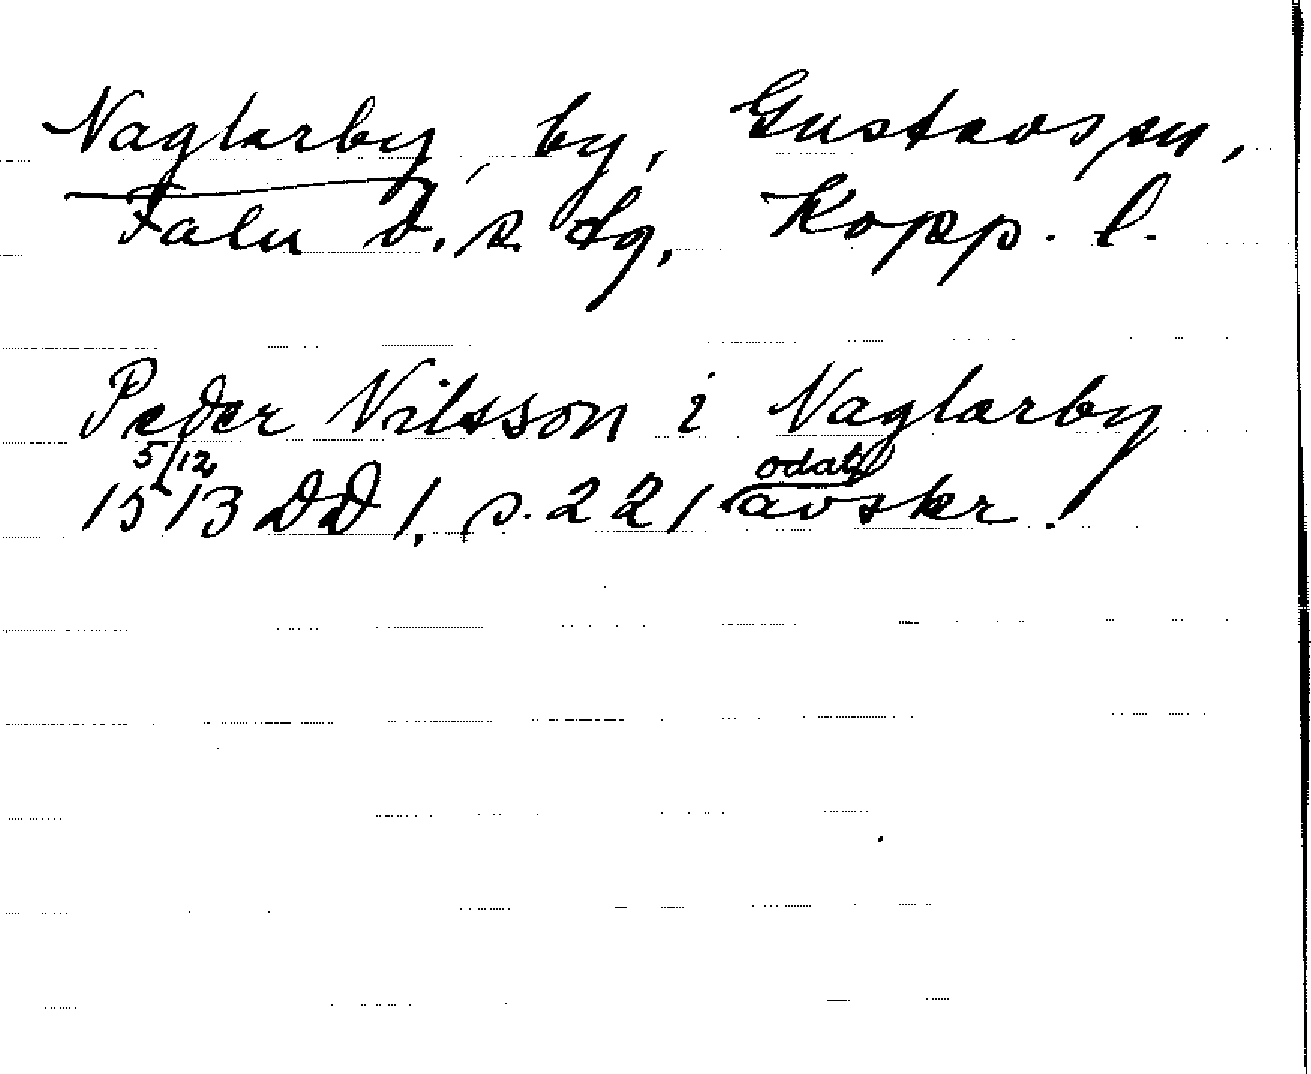 Naglarby, by, Gustavs sn,
Falu d. s. tg, Kopp. l.
Peder Nilsson i Naglarby
5/12 1513 DD 1, s. 221 odat avskr.